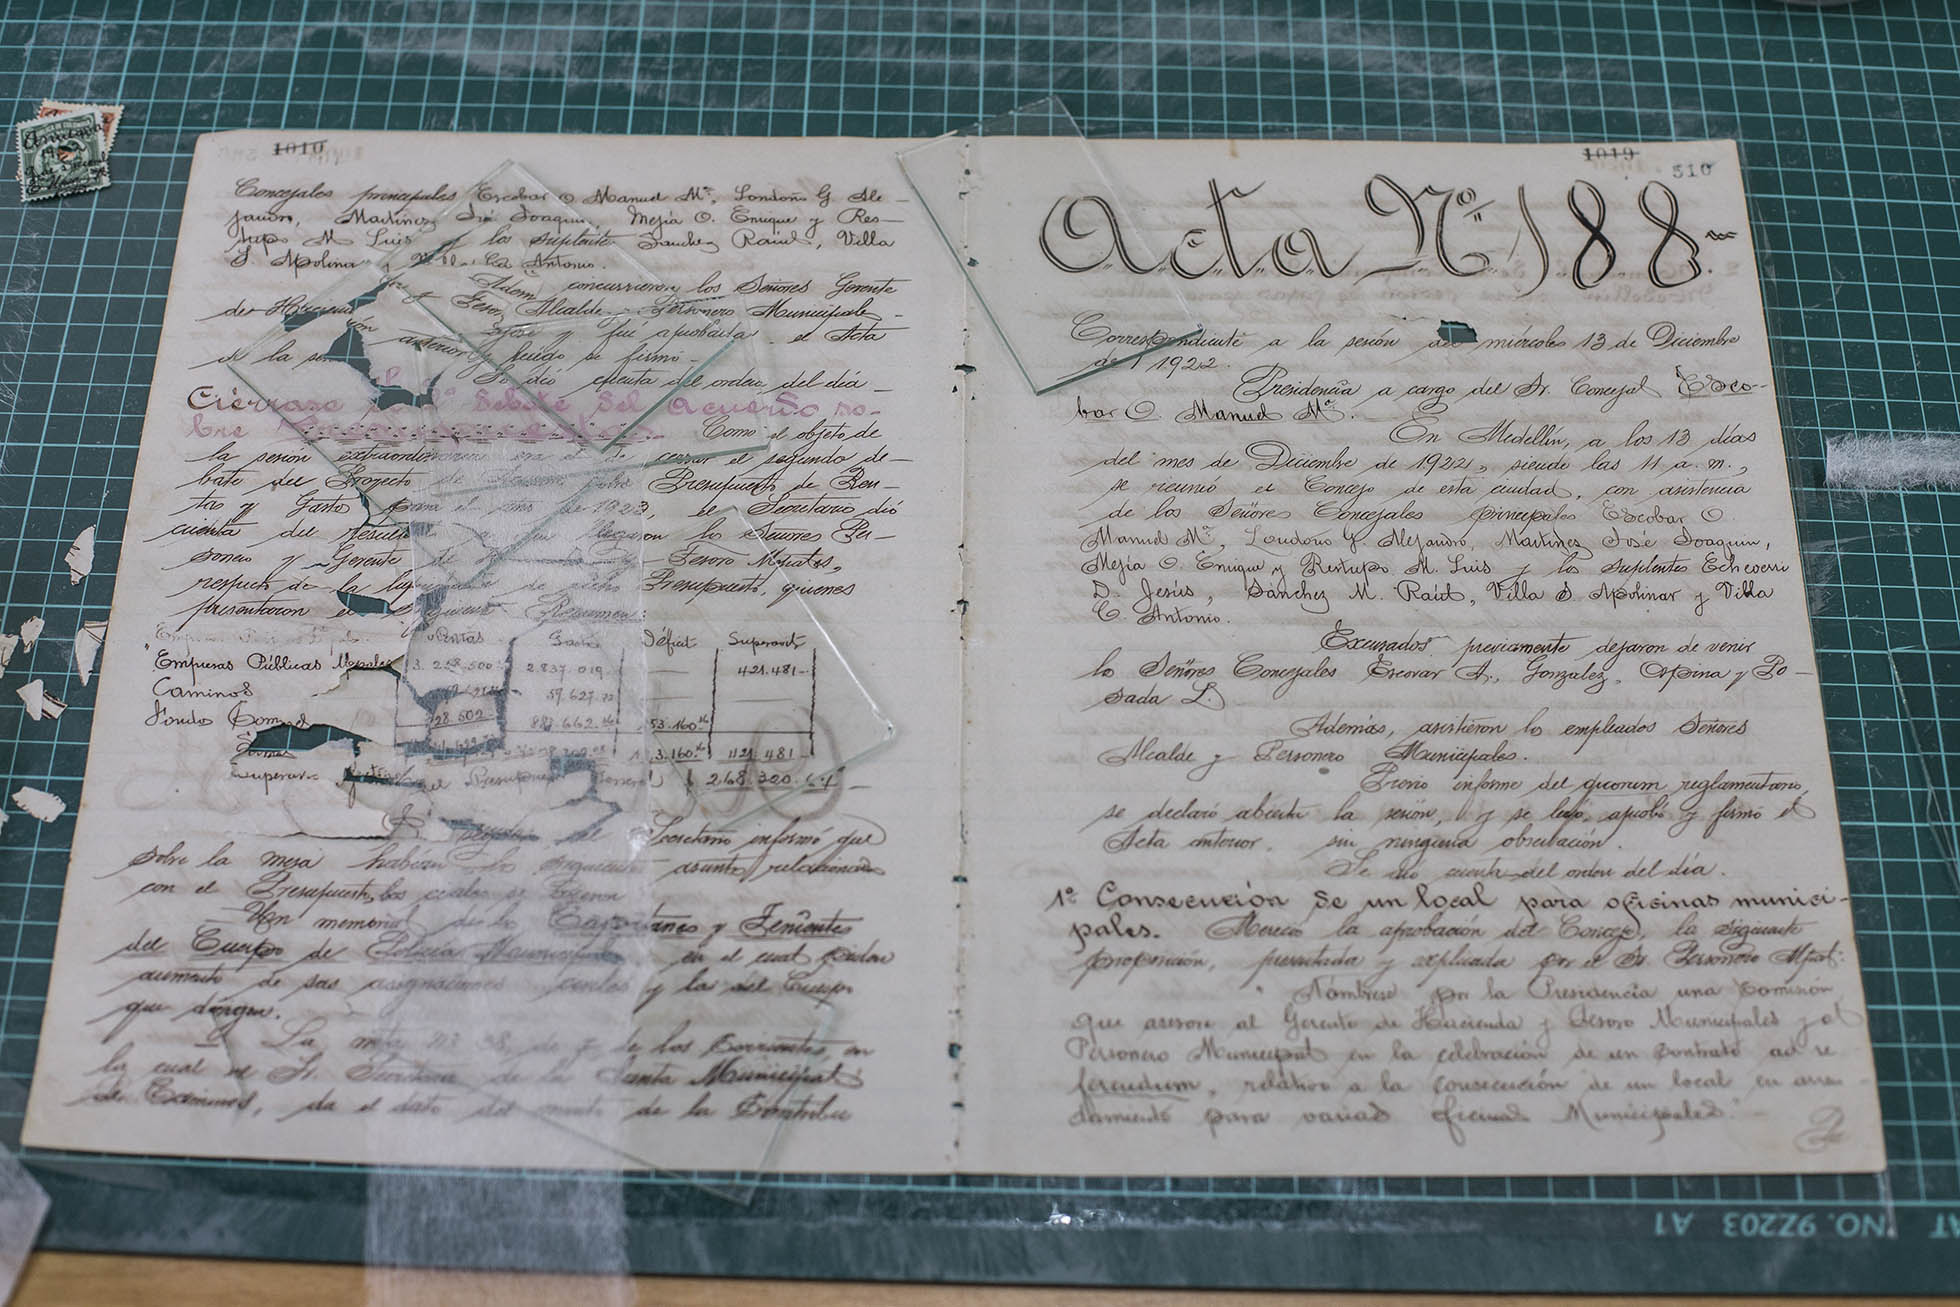 1010
Concejales principales Escobar O Manuel Mª, Londoño G Ale-
jandro, Martínez José Joaquin, Mejía O. Enrique y Res-
trepo M Luis y los suplentes Sanchez Raúl, Villa
S. Molina y Antonio.
concurrieron los Señores Gerente
de Hacienda y Alcalde Personero Municipale-
y fué aprobada el Acta
de la anterior y luego se firmó-
Se dió cuenta del orden del día-
Ciérrase 2º debate del Acuerdo so-
bre
Como el objeto de
la sesión extraordinaria era el de cerrar el segundo de-
bate del Proyecto de sobre Presupuesto de Ren-
tas y Gastos para el año de 1923, el Secretario dió
cuenta del los Señores Per-
sonero y Gerente de Tesoro Mpales,
respecto de la de dicho Presupuesto, quienes
presentaron el siguiente Resumen:
Rentas Gastos Déficit Superavit
"Empresas Públicas Mpales 3.258.500 2.837.019 421.481-
Caminos 59.627.72
Fondos 28.502 881.662.16 53.160.16
Sumas 3.160. 421.481-
Superavit efectivo en el Presupuesto General $ 268.320.
Secretario informó que
sobre la mesa habían los siguientes asuntos relacionados
con el Presupuesto, los cuales se
Un memorial de los Capitanes y Tenientes
del Cuerpo de Policía Municipal en el cual piden
aumento de sus asignaciones y las del Cuerpo
que dirigen.
La nota nº 38, de 7 de los corrientes, en
la cual el Sr. Secretario de la Junta Municipal
de Caminos, da el dato del monto de la Contribu
1019
510
Acta Nº 188
Correspondiente a la sesión del miércoles 13 de Diciembre
de 1922.
Presidencia a cargo del Sr. Concejal Esco-
bar O. Manuel Mª.-
En Medellín, a los 13 días
del mes de Diciembre de 1922, siendo las 11 a.m.,
se reunió el Concejo de esta ciudad, con asistencia
de los Señores Concejales principales Escobar O.
Manuel Mª, Londoño G. Alejandro, Martínez José Joaquín,
Mejía O. Enrique y Restrepo M. Luis y los suplentes Echeverri
D. Jesús, Sánchez M. Raúl, Villa S. Molinar y Villa
C. Antonio.
Excusados previamente dejaron de venir
lo Señores Concejales Escovar A., Gonzalez, Ospina y Po-
sada L.
Además, asistieron lo empleados Señores
Alcalde y Personero Municipales.
Previo informe del quorum reglamentario,
se declaró abierta la sesión, y se leyó, aprobó y firmó el
Acta anterior, sin ninguna observación.
Se dio cuenta del orden del día.
1º Consecución de un local para oficinas munici-
pales. Mereció la aprobación del Concejo, la siguiente
proposición, presentada y explicada por el Sr. Personero Mpal:
"Nómbrese por la Presidencia una Comisión
que asesore al Gerente de Hacienda y Tesoro Municipales y al
Personero Municipal en la celebración de un contrato ad re
ferendum, relativo a la consecución de un local en arren-
damiento para varias oficinas Municipales."-
NO. 9Z203 A1